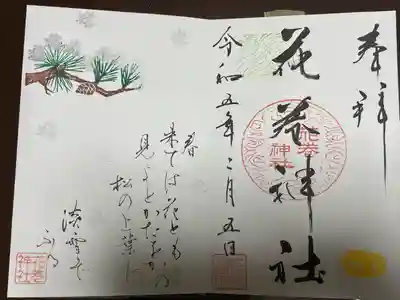 奉拝
花巻神社
花巻
神社
令和五年二月五日
春
来ては花とも
松の上葉に
淡雪ぞ
ふる
花巻
神社